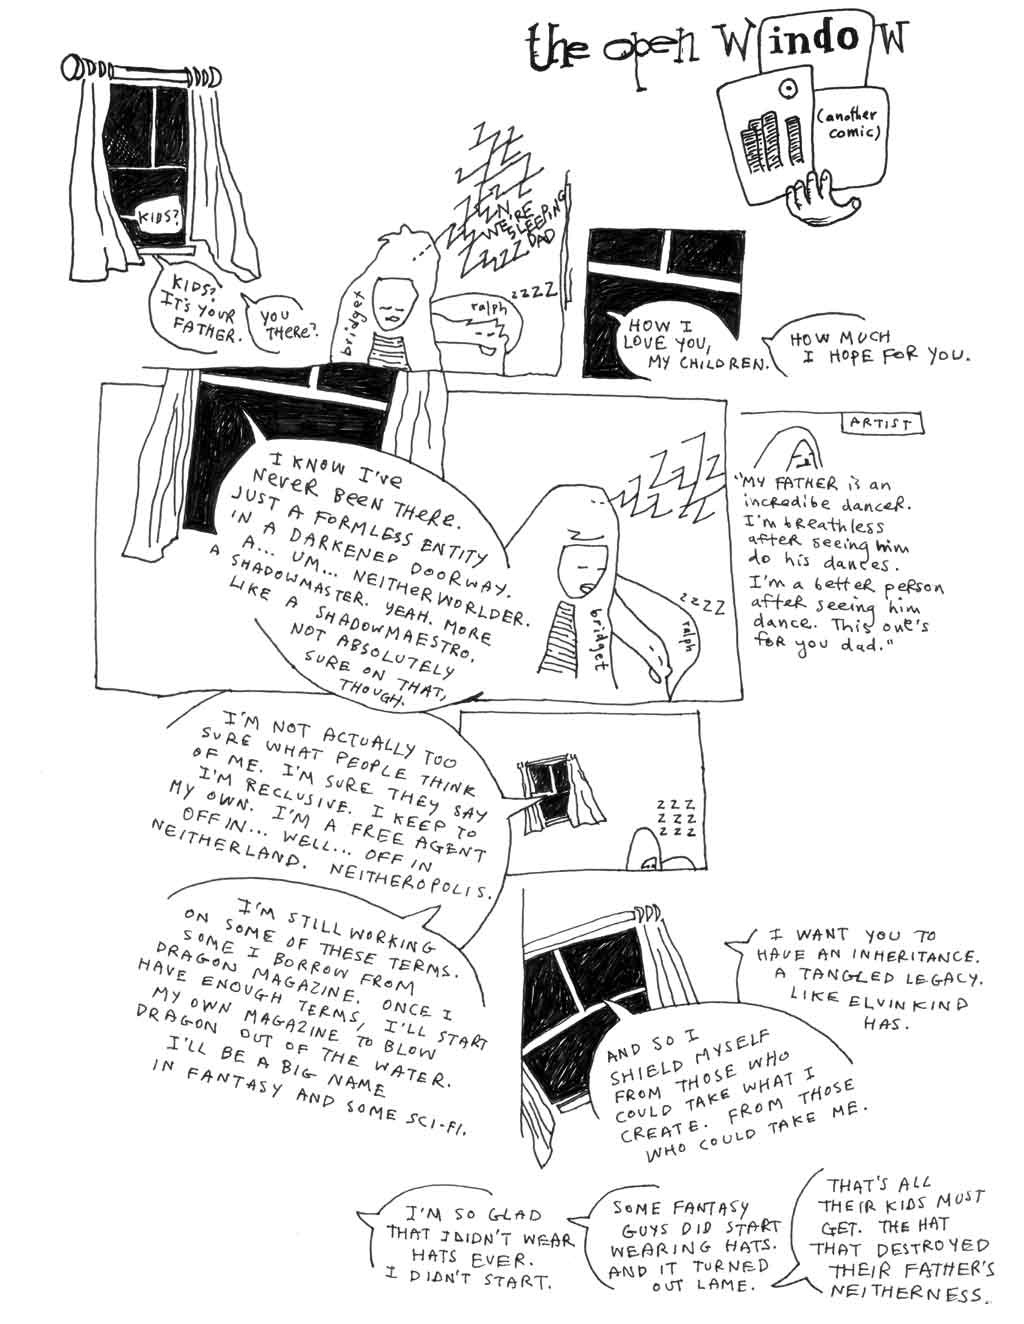 the open WindoW
(another
comic)
KIDS?
KIDS?
IT'S YOUR
FATHER.
YOU
THERE?
ZZZZZZZZZ
WE'RE
SLEEPING
DAD
bridget
ralph
ZZZZ
HOW I
LOVE YOU,
MY CHILDREN.
HOW MUCH
I HOPE FOR YOU.
I KNOW I'VE
NEVER BEEN THERE.
JUST A FORMLESS ENTITY
IN A DARKENED DOORWAY.
A... UM... NEITHERWORLDER.
A SHADOWMASTER. YEAH. MORE
LIKE A SHADOWMAESTRO.
NOT ABSOLUTELY
SURE ON THAT,
THOUGH.
ZZZZZZZZZ
bridget
ralph
ZZZZ
ARTIST
"MY FATHER is an
incredibe dancer.
I'm breathless
after seeing him
do his dances.
I'm a better person
after seeing him
dance. This one's
for you dad."
I'M NOT ACTUALLY TOO
SURE WHAT PEOPLE THINK
OF ME. I'M SURE THEY SAY
I'M RECLUSIVE. I KEEP TO
MY OWN. I'M A FREE AGENT
OFF IN... WELL... OFF IN
NEITHERLAND. NEITHEROPOLIS.
ZZZ
ZZZ
ZZZ
I'M STILL WORKING
ON SOME OF THESE TERMS.
SOME I BORROW FROM
DRAGON MAGAZINE. ONCE I
HAVE ENOUGH TERMS, I'LL START
MY OWN MAGAZINE TO BLOW
DRAGON OUT OF THE WATER.
I'LL BE A BIG NAME
IN FANTASY AND SOME SCI-FI.
I WANT YOU TO
HAVE AN INHERITANCE.
A TANGLED LEGACY.
LIKE ELVINKIND
HAS.
AND SO I
SHIELD MYSELF
FROM THOSE WHO
COULD TAKE WHAT I
CREATE. FROM THOSE
WHO COULD TAKE ME.
I'M SO GLAD
THAT I DIDN'T WEAR
HATS EVER.
I DIDN'T START.
SOME FANTASY
GUYS DID START
WEARING HATS.
AND IT TURNED
OUT LAME.
THAT'S ALL
THEIR KIDS MUST
GET. THE HAT
THAT DESTROYED
THEIR FATHER'S
NEITHERNESS.